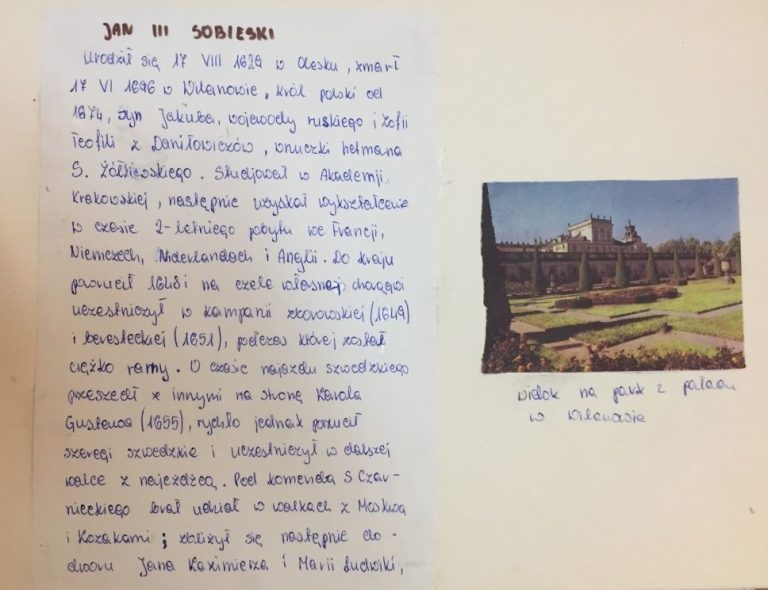 JAN III SOBIESKI
Urodził się 17 VIII 1629 w Olesku, zmarł
17 VI 1696 w Wilanowie, król polski od
1674, syn Jakuba, wojewody ruskiego i Zofii
Teofili z Daniłowiczów, wnuczki hetmana
S. Żółkiewskiego. Studjował w Akademji
Krakowskiej, następnie uzyskał wykształcenie
w czasie 2-letniego pobytu we Francji,
Niemczech, Niderlandach i Anglii. Do kraju
powrócił 1648 i na czele własnej chorągwi
uczestniczył w kampanii zborowskiej (1649)
i beresteckiej (1651), podczas której został
ciężko ranny. W czasie najazdu szwedzkiego
przeszedł z innymi na stronę Karola
Gustawa (1655), rychło jednak porzucił
szeregi szwedzkie i uczestniczył w dalszej
walce z najeźdźcą. Pod komendą S Czar-
nieckiego brał udział w walkach z Moskwą
i Kozakami; zbliżył się następnie do
dworu Jana Kazimierza i Marii Ludwiki,
widok na park z pałacu
w Wilanowie